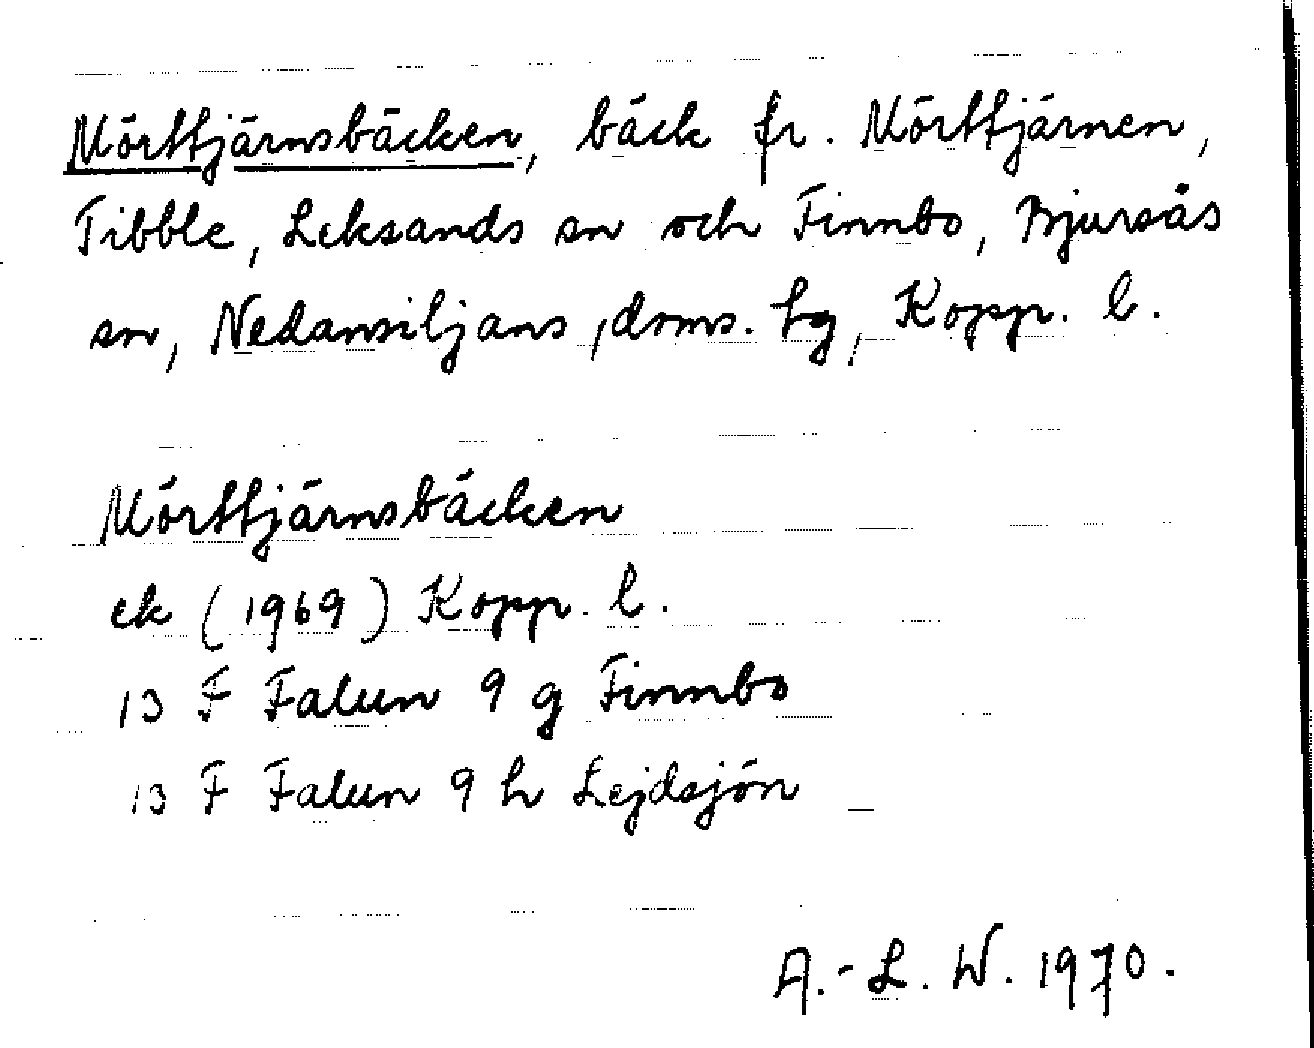 Mörttjärnsbäcken, bäck fr. Mörttjärnen,
Tibble, Leksands sn och Finnbo, Bjursås
sn, Nedansiljans, doms. hg, Kopp. l.
Mörttjärnsbäcken
ek (1969) Kopp. l.
13 F Falun 9 g Finnbo
13 F Falun 9 h Lejdsjön
A.-L. W. 1970.